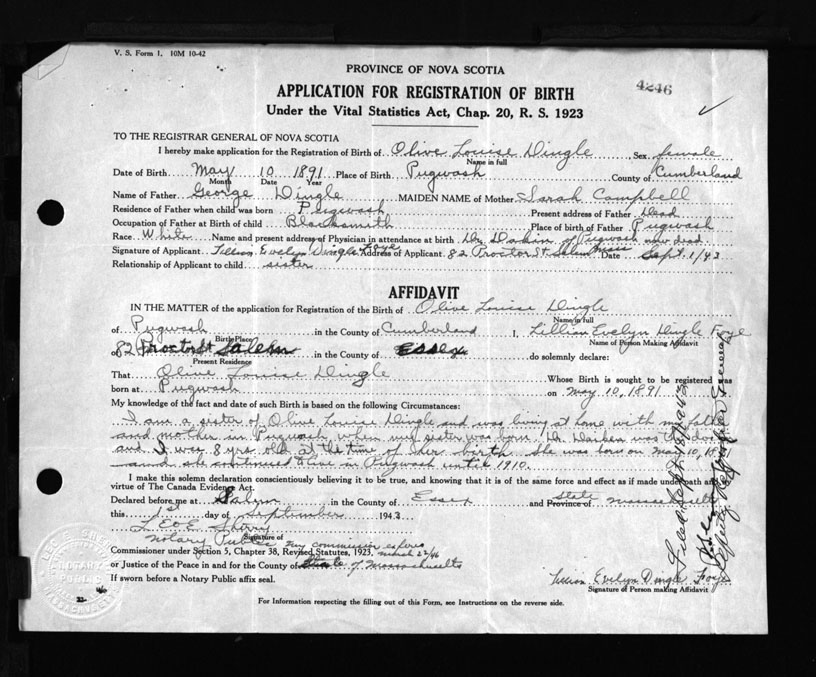 V. S. Form 1. 10M 10-42
PROVINCE OF NOVA SCOTIA
4246
APPLICATION FOR REGISTRATION OF BIRTH
Under the Vital Statistics Act, Chap. 20, R. S. 1923
TO THE REGISTRAR GENERAL OF NOVA SCOTIA
I hereby make application for the Registration of Birth of Olive Louise Dingle, Sex female
Name in full
Date of Birth May 10 1891 Place of Birth Pugwash County of Cumberland
Month Date Year
Name of Father George Dingle MAIDEN NAME of Mother Sarah Campbell
Residence of Father when child was born Pugwash Present address of Father Dead
Occupation of Father at Birth of child Blacksmith Place of birth of Father Pugwash
Race White Name and present address of Physician in attendance at birth Dr. of Pugwash now dead
Signature of Applicant Lillian Evelyn Dingle Foye Address of Applicant 82 Proctor St Salem Mass Date Sept 1/43
Relationship of Applicant to child sister
AFFIDAVIT
IN THE MATTER of the application for Registration of the Birth of Olive Louise Dingle
Name in full
of Pugwash in the County of Cumberland I, Lillian Evelyn Dingle Foye
Birth Place Name of Person Making Affidavit
82 Proctor St Salem in the County of Essex do solemnly declare:
Present Residence
That Olive Louise Dingle Whose Birth is sought to be registered was
born at Pugwash on May 10, 1891
My knowledge of the fact and date of such Birth is based on the following Circumstances:
I am a sister of Olive Louise Dingle and was living at home with my father
and mother in Pugwash when my sister was born. Dr. was the
and I was 8 yrs old at the time of her birth. She was born on May 10, 1891
and she continued to live in Pugwash until 1910.
I make this solemn declaration conscientiously believing it to be true, and knowing that it is of the same force and effect as if made under oath
virtue of The Canada Evidence Act.
Declared before me at Salem in the County of Essex and Province of state Massachusetts
this 1st day of September 1943
Signature of
Notary Public My commission expires
Commissioner under Section 5, Chapter 38, Revised Statutes, 1923, March 22/46
or Justice of the Peace in and for the County of State of Massachusetts
If sworn before a Notary Public affix seal.
Lillian Evelyn Dingle Foye
Signature of Person making Affidavit
For Information respecting the filling out of this Form, see Instructions on the reverse side.
NOTARY
PUBLIC
MASSACHUSETTS
Filed Sept 1943
Deputy